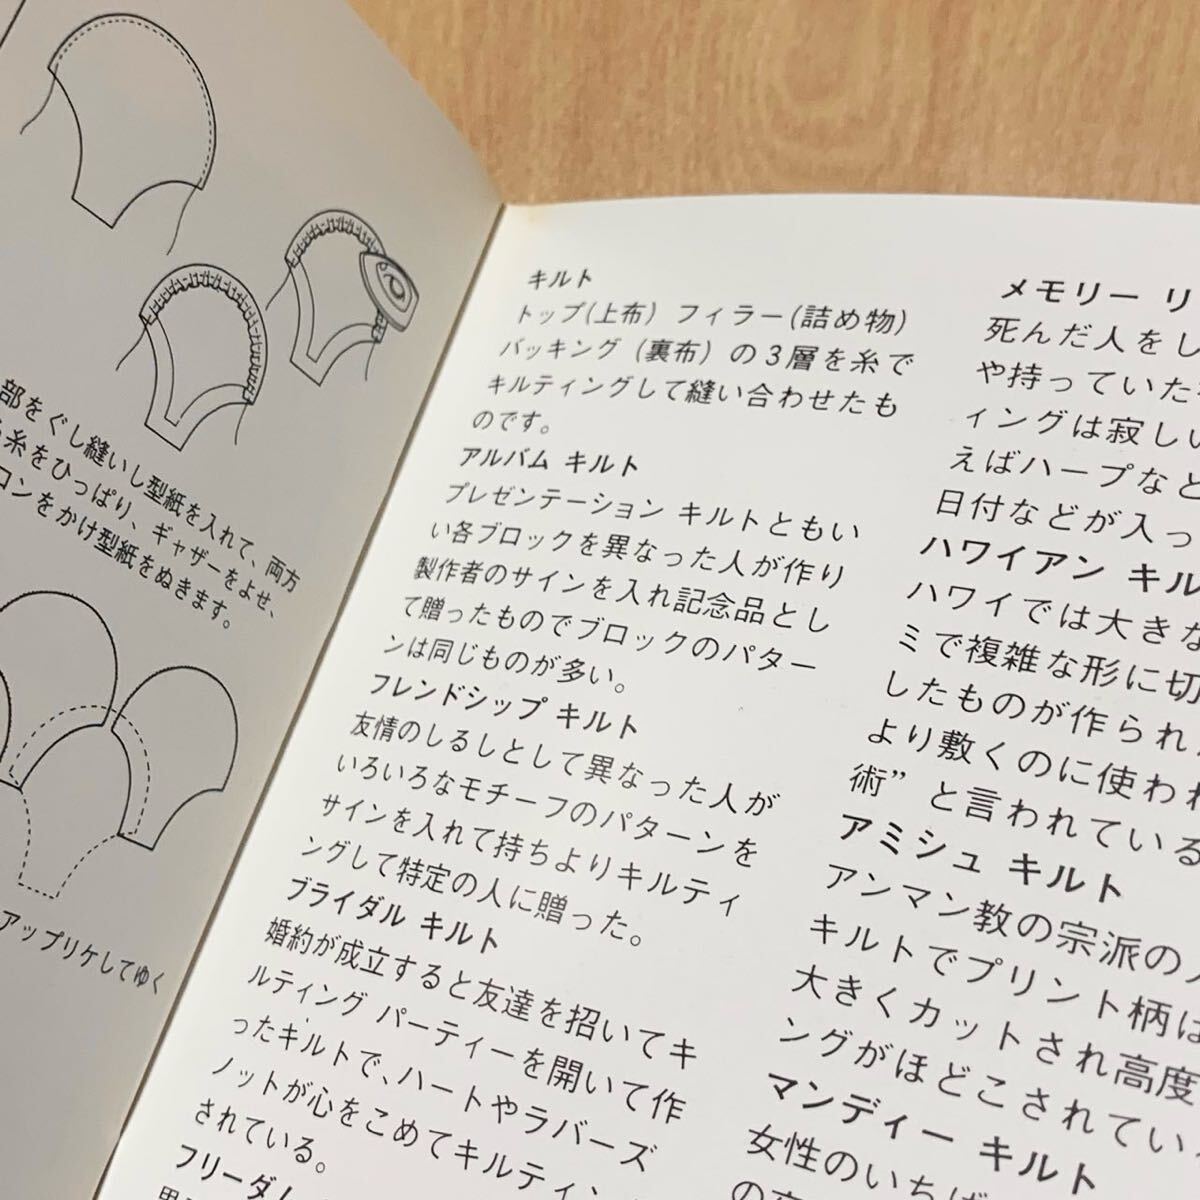 部をぐし縫いし型紙を入れて、両方
糸をひっぱり、ギャザーをよせ、
ロンをかけ型紙をぬきます。
アップリケしてゆく
キルト
トップ(上布) フィラー(詰め物)
バッキング (裏布) の3層を糸で
キルティングして縫い合わせたも
のです。
アルバム キルト
プレゼンテーション キルトともい
い各ブロックを異なった人が作り
製作者のサインを入れ記念品とし
て贈ったものでブロックのパター
ンは同じものが多い。
フレンドシップ キルト
友情のしるしとして異なった人が
いろいろなモチーフのパターンを
サインを入れて持ちよりキルティ
ングして特定の人に贈った。
ブライダル キルト
婚約が成立すると友達を招いてキ
ルティング パーティーを開いて作
ったキルトで、ハートやラバーズ
ノットが心をこめてキルティン
されている。
フリーダ
メモリー リ
死んだ人をし
や持っていた
ィングは寂しい
えばハープなど
日付などが入っ
ハワイアン キル
ハワイでは大きな
ミで複雑な形に切
したものが作られ
より敷くのに使われ
術”と言われている
アミシュ キルト
アンマン教の宗派の
キルトでプリント柄は
大きくカットされ高度
ングがほどこされてい
マンディー キルト
女性のいちば
の